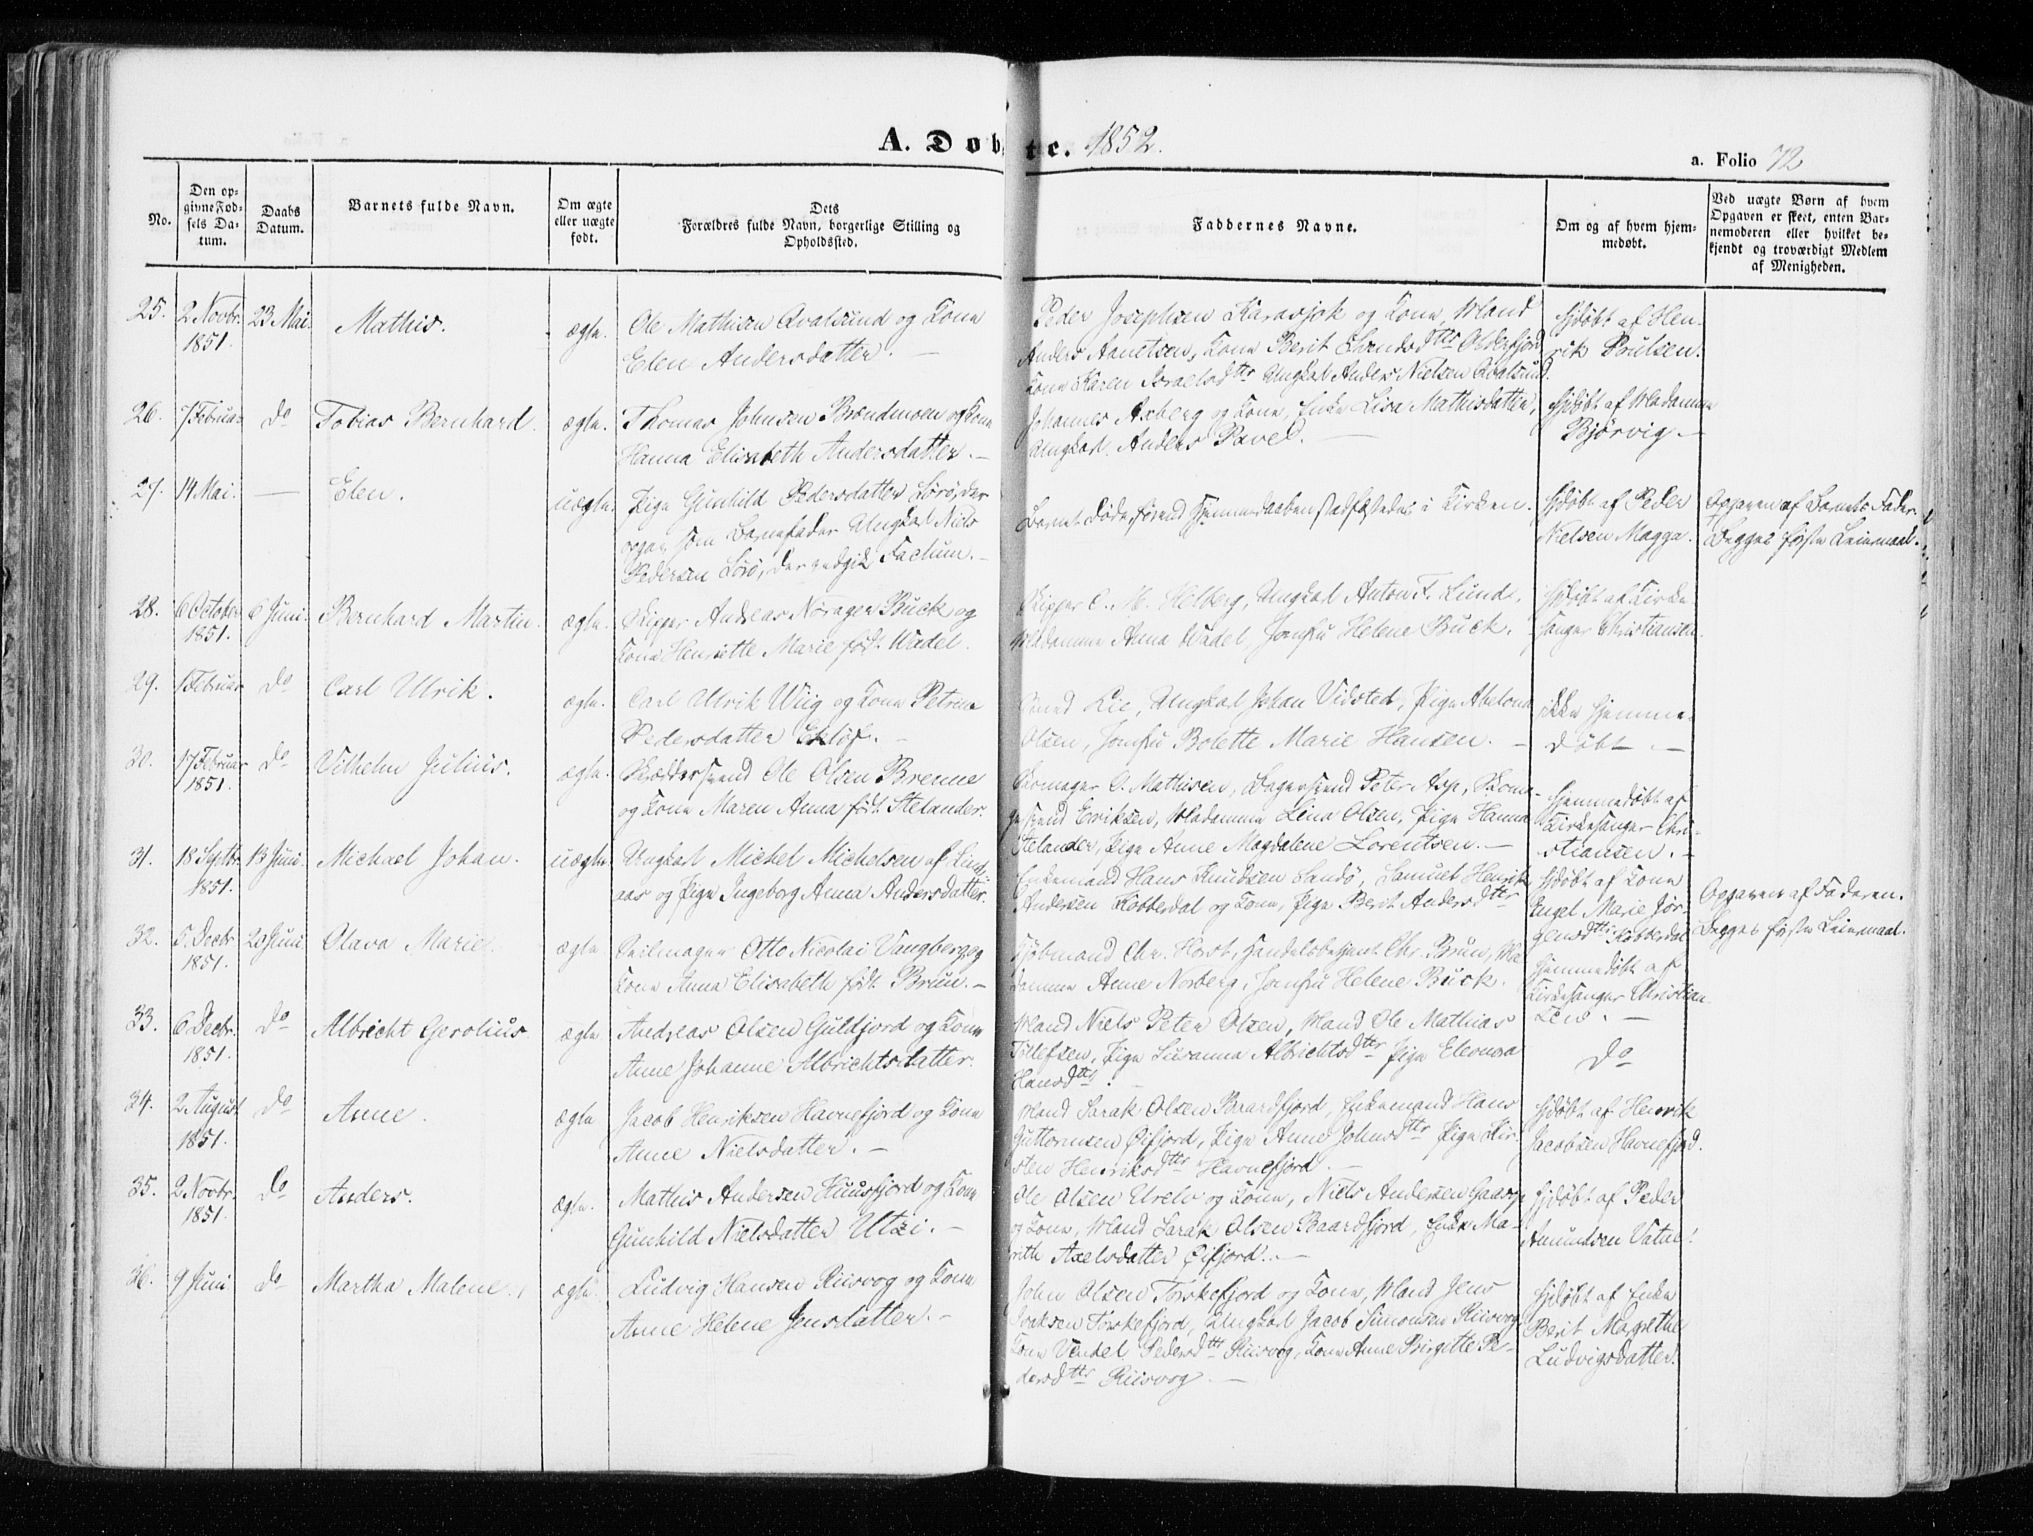 A. Døbte. 1852.
a. Folio 72
No.
Den op-
givne Fød-
sels Da-
tum.
Daabs
Datum.
Barnets fulde Navn.
Om ægte
eller uægte
født.
Dets
Forældres fulde Navn, borgerlige Stilling og
Opholdssted.
Faddernes Navne.
Om og af hvem hjem-
medøbt.
Ved uægte Børn af hvem
Opgaven er skeet, enten Bar-
nemoderen eller hvilket be-
kjendt og troværdigt Medlem
af Menigheden.
25. 2 Novbr. 1851. 23 Mai. Mathis. ægte.
Ole Mathisen Qvalsund og Kone
Elen Andersdatter. —
Peder Josephsen Karasjok og Kone, Mand
Anders Kone Berit Olderfjord
Kone Karen Israelsdtter Ungkal Anders Nielsen Qvalsund.
Hjdøbt af Hen-
rik Poulsen.
26. 7 Februar do Tobias Bernhard. ægte.
Thomas Johnsen Brændmoen og Kone
Hanna Elisabeth Andersdatter. —
Johannes Axberg og Kone, Enke Lisa Mathisdatter,
Ungkal. Anders Pavel. —
Hjdøbt af Madamme
Bjørvig. —
27. 14 Mai. — Elen. uægte.
Pige Gunhild Pedersdatter Sørø, der
opgav som Barnefader Ungkal Niels
Pedersen Sørø, der vedgik Factum. —
Barnet døde, førend Hjemmedaaben stadfæstedes i Kirken.
Hjdøbt af Peder
Nielsen Magga.
Opgaven af Barnets Fader.
Begges første Leiermaal.
28. 6 October 1851. 6 Juni. Bernhard Martin. ægte.
Skipper Andreas Norager Buck og
Kone Henriette Marie født Wadel.
Skipper C. M. Helberg, Ungkal Anton F. Lund,
Madamme Anna Wadel, Jomfru Helene Buck.
Hjdøbt af Kirke-
sanger Christiansen.
29. 1 Februar do Carl Ulrik. ægte.
Carl Ulrik Wiig og Kone Petrine
Pedersdatter Ekløf. —
Smed Lie, Ungkal Johan Vidsted, Pige Abelona
Olsen, Jomfru Bolette Marie Hansen. —
ikke hjemme-
døbt. —
30. 17 Februar 1851. do Vilhelm Julius. ægte.
Skræddersvend Ole Olsen Brenne
og Kone Maren Anna født Stelander.
Skomager O. Mathisen, Bagersvend Peter Asp, Skoma-
gersvend Eriksen, Madamme Lena Olsen, Pige Hanna
Stelander, Pige Anne Magdalene Lorentsen. —
Hjemmedøbt af
Kirkesanger Chri-
stiansen. —
31. 18 Septbr. 1851. 13 Juni. Michael Johan. uægte.
Ungkal Michel Michelsen af Lind-
aas og Pige Ingeborg Anna Andersdatter.
Enkemand Hans Knudsen Sandø, Samuel Henrik
Andersen Kobberdal og Kone, Pige Berit Andersdtter
Hjdøbt af Kone
Engel Marie Jør-
gensdtter Kobberdal
Opgaven af Faderen.
Begges første Leiermaal.
32. 5 Decbr. 1851. 20 Juni Olava Marie. ægte
Seilmager Otto Nicolai Vangberg og
Kone Anna Elisabeth født Brun. —
Kjøbmand Chr. Horst, Handelsbetjent Chr. Brun, Ma-
damme Anne Norberg, Jomfru Helene Buck.
Hjemmedøbt af
Kirkesanger Christian-
sen. —
33. 6 Decbr. 1851. do Albrecht Gerolius. ægte
Andreas Olsen Gulfjord og Kone
Anne Johanne Albrichtsdatter.
Mand Niels Peter Olsen, Mand Ole Mathias
Tollefsen, Pige Susanna Albrichtsdtter Pige Eleonora
Hansdtter. —
do
34. 2 August 1851. do Anne. ægte
Jacob Henriksen Havnefjord og Kone
Anne Nielsdatter. —
Mand Sarak Olsen Baardfjord, Enkemand Hans
Guttormsen Øifjord, Pige Anne Johnsdtter Pige Kir-
sten Henriksdtter Havnefjord. —
Hjdøbt af Henrik
Jacobsen Havnefjord.
35. 2 Novbr. 1851. do Anders. ægte.
Mathis Andersen Huusfjord og Kone
Gunhild Nielsdatter Utsi. —
Ole Olsen Elvelv og Kone, Niels Andersen
og Kone, Mand Sarak Olsen Baardfjord, Enke Ma-
rith Axelsdatter Øifjord. —
Hjdøbt af Peder
Amundsen Vatne!
36. 9 Juni do Martha Malene. ægte
Ludvig Hansen Riisvog og Kone
Anne Helene Jensdatter. —
John Olsen Torskefjord og Kone, Mand Jens
Isaksen Torskefjord, Ungkal Jacob Simonsen Riisvog,
Kone Vendel Pedersdtter Riisvog, Kone Anne Birgitte Pe-
dersdtter Riisvog. —
Hjdøbt af Enke
Berit Magrethe
Ludvigsdatter.